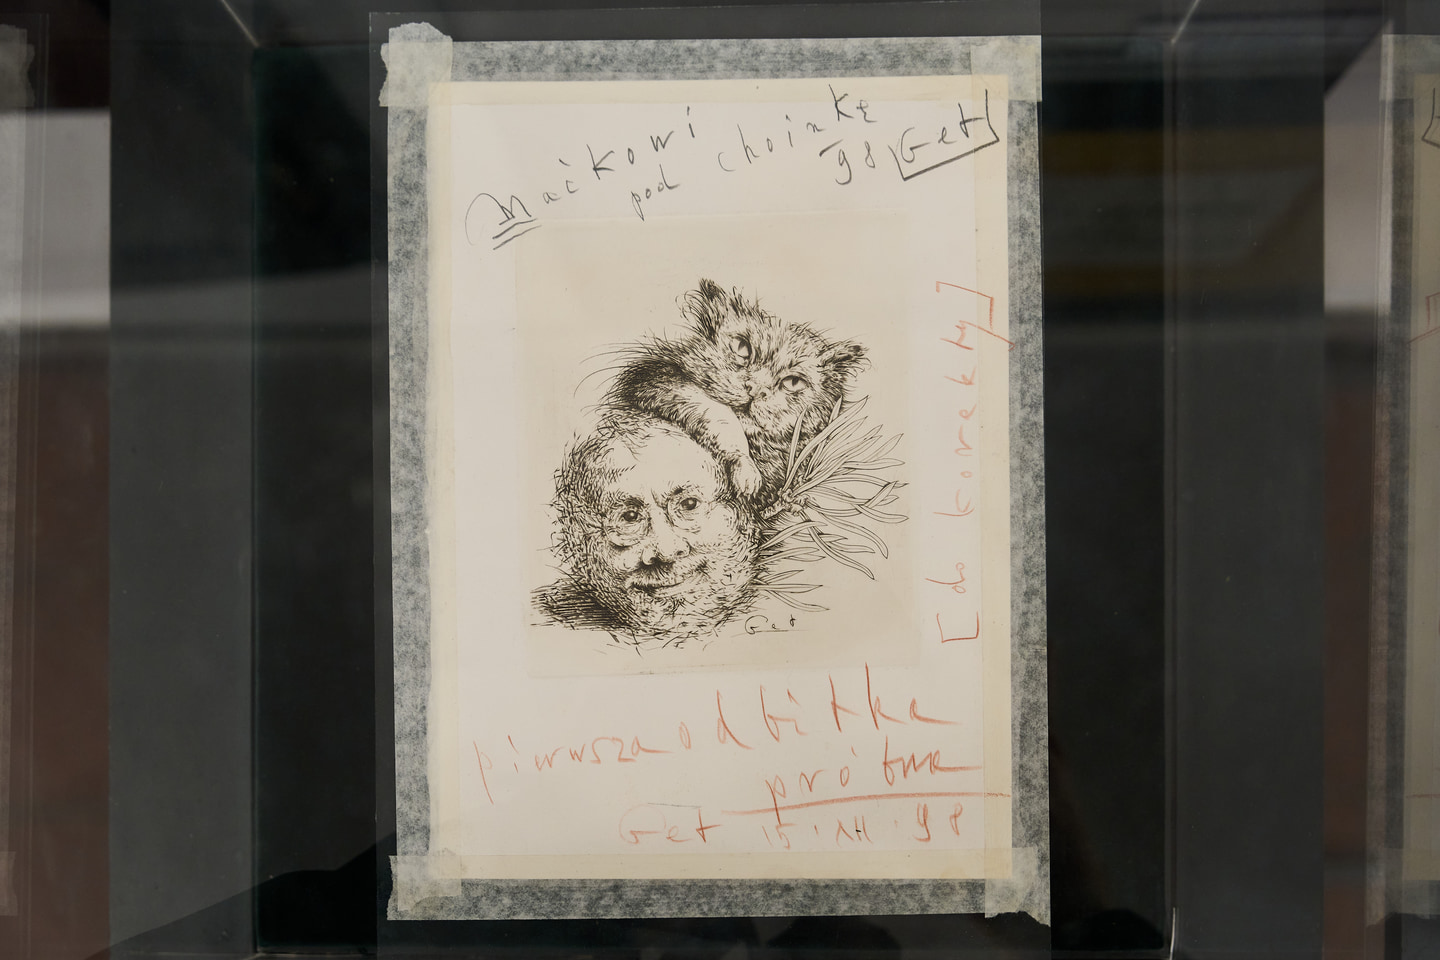 Maćkowi
pod choinkę
98 Get
[do korekty]
Get
pierwsza odbitka
próbna
Get 15.XII.98